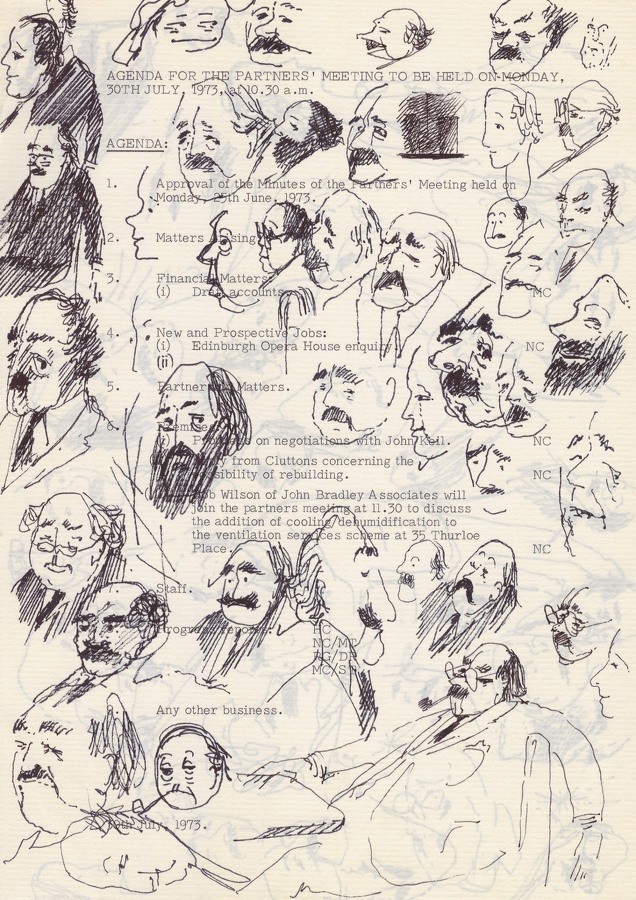 AGENDA FOR THE PARTNERS' MEETING TO BE HELD ON MONDAY,
30TH JULY, 1973, at 10.30 a.m.
AGENDA:
1. Approval of the Minutes of the Partners' Meeting held on
Monday, 25th June, 1973.
2. Matters Arising
3. Financial Matters
(i) Draft accounts. MC
4. New and Prospective Jobs:
(i) Edinburgh Opera House enquiry. NC
(ii
5. Partners Matters.
6. Premises
Progress on negotiations with John Keil. NC
from Cluttons concerning the
possibility of rebuilding. NC
Bob Wilson of John Bradley Associates will
join the partners meeting at 11.30 to discuss
the addition of cooling/dehumidification to
the ventilation services scheme at 35 Thurloe
Place. NC
Staff.
Progress reports:
NC/MT
MC/S
Any other business.
July, 1973.